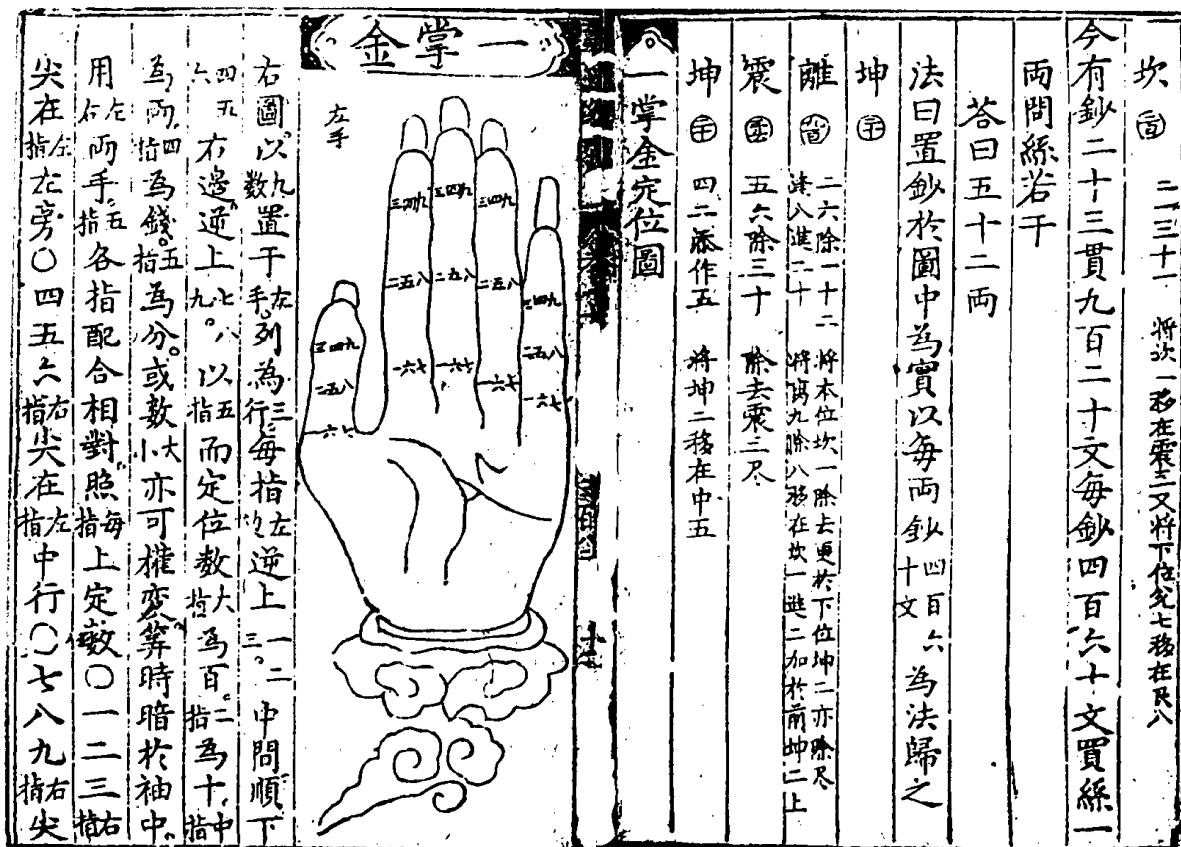 坎 二三十一 將次一移在震三又將下位兌七移在艮八
今有鈔二十三貫九百二十文每鈔四百六十文買絲一
兩問絲若干
答曰五十二兩
法曰置鈔於圖中為實以每兩鈔四百六十文為法歸之
坤
離 二六除一十二 將本位坎一除去更於下位坤二亦除尽
逢八進二十 將离九除八移在坎一進二加於前坤二上
震 五六除三十 除去震三尽
坤 四二添作五 將坤二移在中五
一掌金定位圖
一掌金
左手
三四九
二五八
一六七
三四九
二五八
一六七
三四九
二五八
一六七
三四九
二五八
一六七
三四九
二五八
一六七
右圖以九數置于左手列為三行每指左邊逆上一二三。中間順下
四五六右邊逆上七八九。以五指而定位數大指為百。二指為十,中指
為兩,四指為錢。五指為分。或數大小亦可權变筭時暗於袖中,
用左右兩手。五指各指配合相對照每指上定數〇一二三右指
尖在左指左旁〇四五六右指尖在左指中行〇七八九右指尖